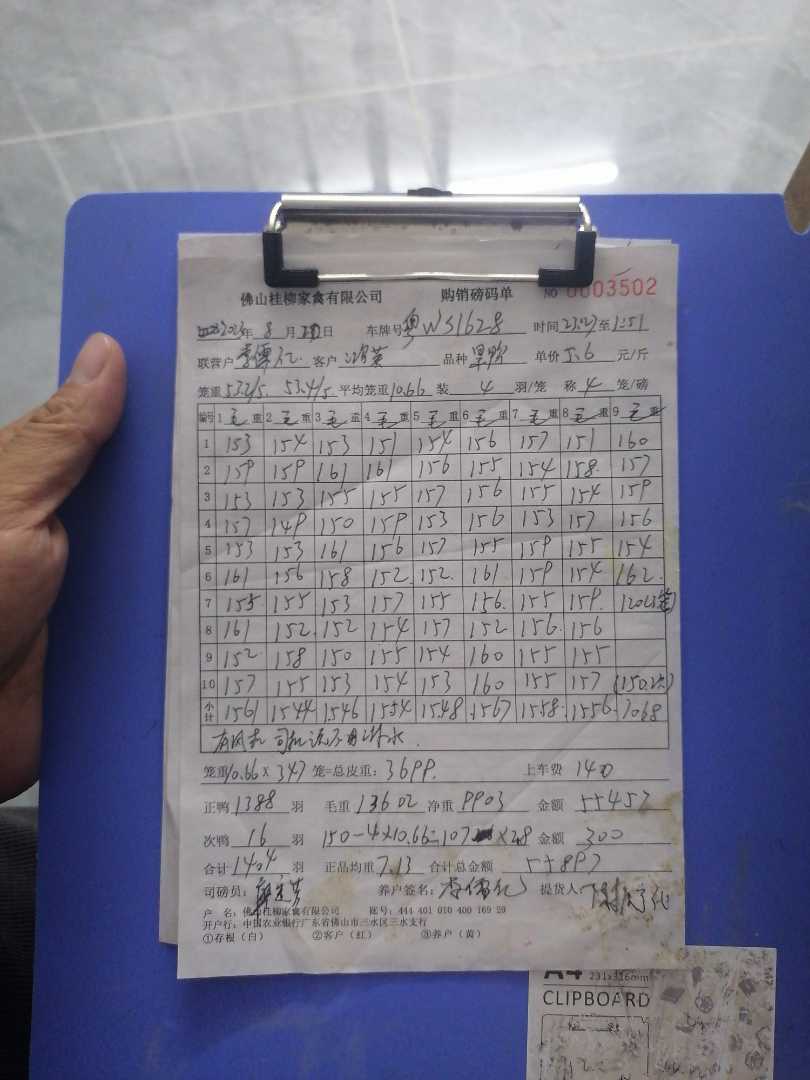 佛山桂柳家禽有限公司 购销磅码单 NO 0003502
年 8 月 日 车牌号 粤WS1628 时间 23:27 至 1:51
联营户 李儒亿 客户 鸿英 品种 单价 5.6 元/斤
笼重 53.2/5. 53.4/5 平均笼重 10.66 装 4 羽/笼 称 4 笼/磅
编号 1 毛 重 2 毛 重 3 毛 重 4 毛 重 5 毛 重 6 毛 重 7 毛 重 8 毛 重 9 毛 重
1 153 154 153 151 154 156 157 151 160
2 159 159 161 161 156 155 154 158 157
3 153 153 155 155 157 156 155 154 159
4 157 149 150 159 153 156 153 157 156
5 153 153 161 156 157 155 159 155 154
6 161 156 158 152 152 161 159 154 162
7 155 155 153 157 155 156 155 159 120(3笼)
8 161 152 152 154 157 152 156 156
9 152 158 150 155 154 160 155 155
10 157 155 153 154 153 160 155 157 (150.次)
小计 1561 1544 1546 1554 1548 1567 1558 1556 1068
有风机 司机说不用冲水.
笼重 10.66 X 347 笼=总皮重: 3699. 上车费 140
正鸭 1388 羽 毛重 13602 净重 9903 金额 55457
次鸭 16 羽 150-4×10.66=107 ×2.8 金额 300
合计 1404 羽 正品均重 7.13 合计总金额 55897
司磅员: 养户签名: 李儒亿 提货人
户 名: 佛山桂柳家禽有限公司 账号: 444 401 010 400 169 29
开户行: 中国农业银行广东省佛山市三水区三水支行
①存根(白) ②客户(红) ③养户(黄)
A4 231x316mm
CLIPBOARD